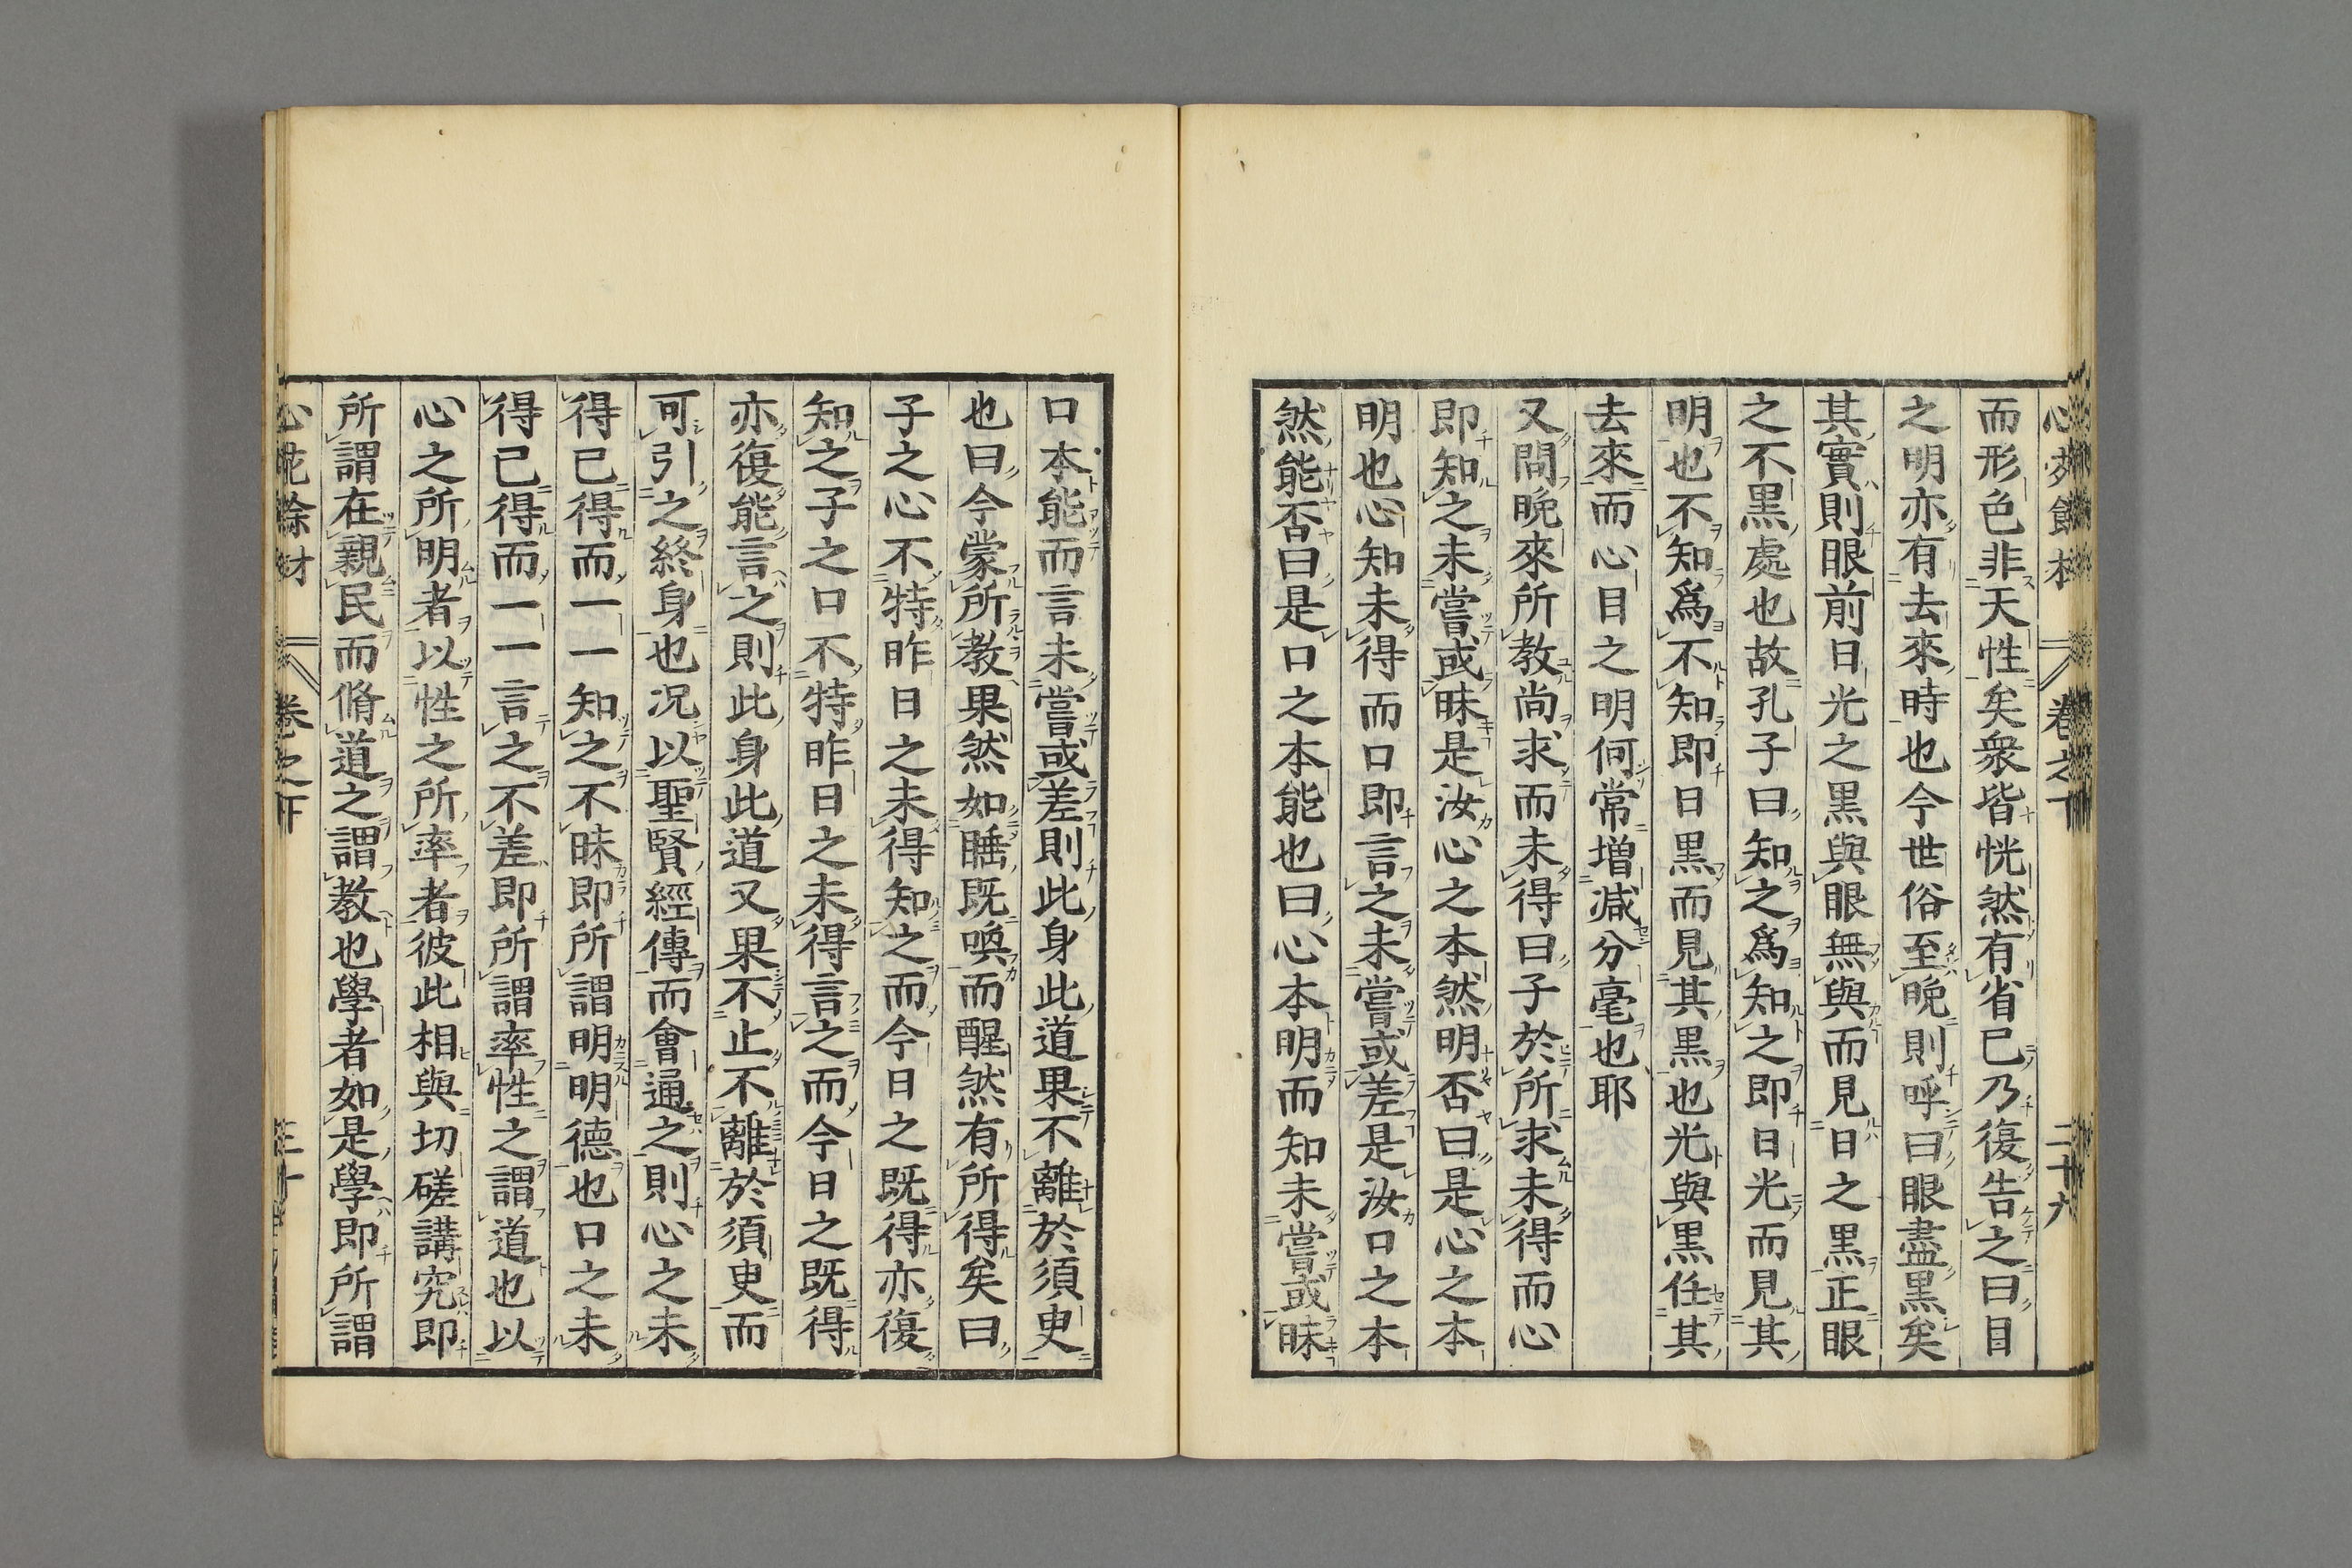 而形色非天性矣衆皆恍然有省已乃復告之曰目
之明亦有去來時也今世俗至晩則呼曰眼盡黒矣
其實則眼前日光之黒與眼無與而見日之黒正眼
之不黒處也故孔子曰知之爲知之即日光而見其
明也不知爲不知即日黒而見其黒也光與黒任其
去來而心目之明何常增减分毫也耶
又問晩來所教尚求而未得曰子於所求未得而心
即知之未嘗或昧是汝心之本然明否曰是心之本
明也心知未得而口即言之未嘗或差是汝口之本
然能否曰是口之本能也曰心本明而知未嘗或昧
口本能而言未嘗或差則此身此道果不離於須臾
也曰今蒙所教果然如睡既喚而醒然有所得矣曰
子之心不特昨日之未得知之而今日之既得亦復
知之子之口不特昨日之未得言之而今日之既得
亦復能言之則此身此道又果不止不離於須臾而
可引之終身也况以聖賢經傳而會通之則心之未
得已得而一一知之不昧即所謂明明德也口之未
得已得而一一言之不差即所謂率性之謂道也以
心之所明者以性之所率者彼此相與切磋講究即
所謂在親民而脩道之謂教也學者如是學即所謂